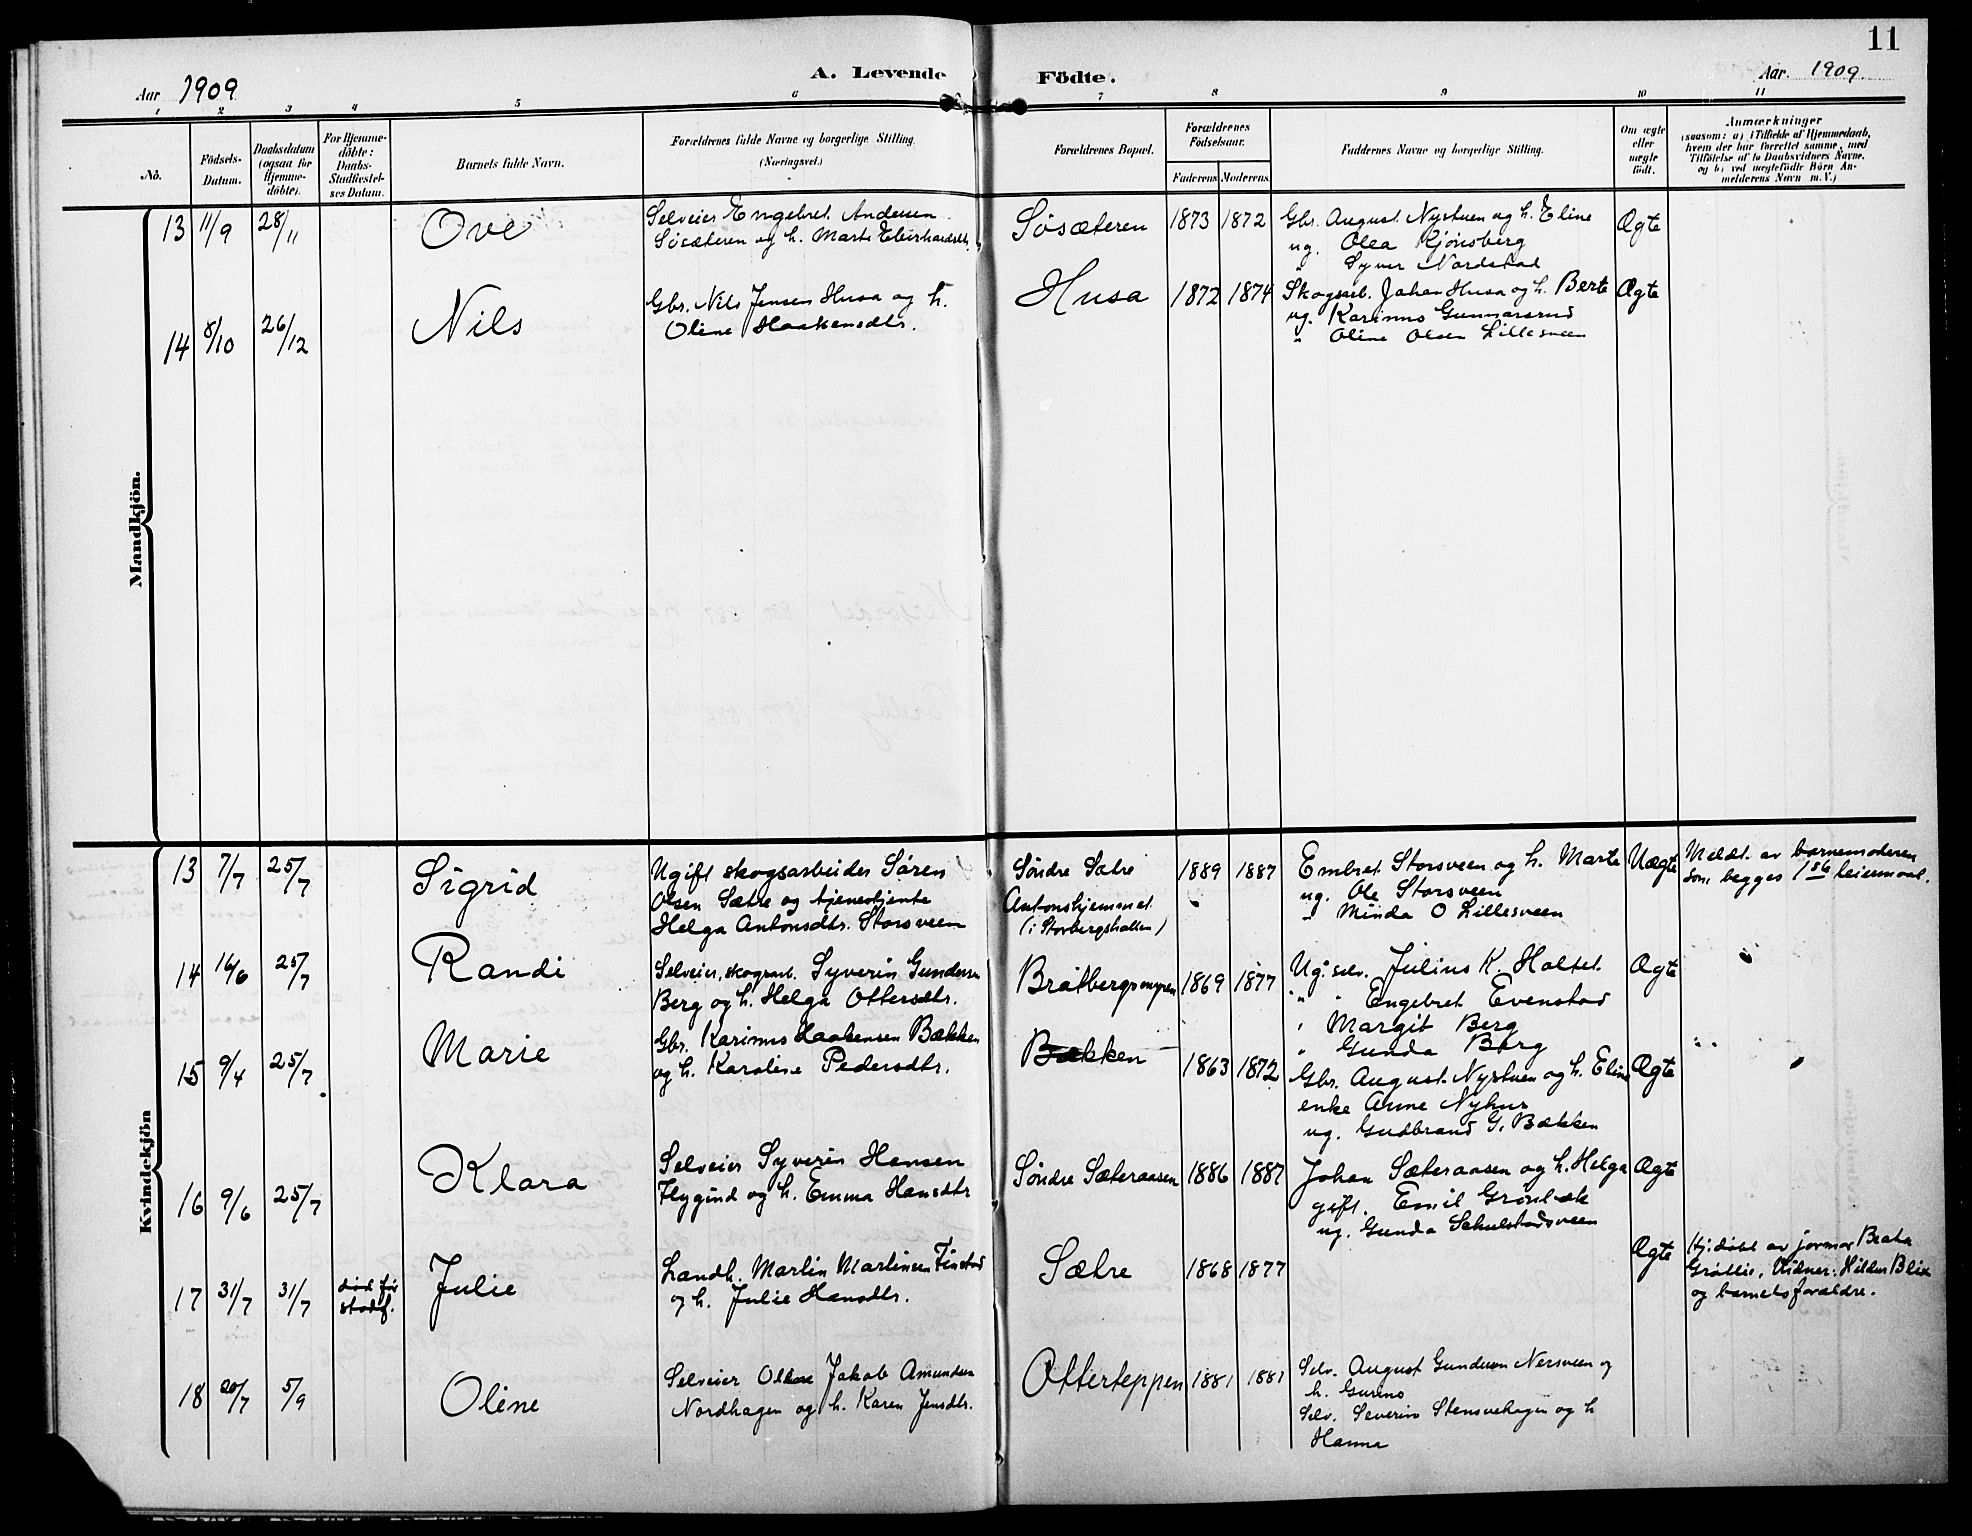 11
Aar 1909
A. Levende
Födte.
Aar. 1909
1 2 3 4 5 6 7 8 9 10 11
No.
Födsels-
Datum.
Daabsdatum
(ogsaa for
Hjemme-
döbte).
For Hjemme-
döbte:
Daabs-
Stadfæstel-
ses Datum.
Barnets fulde Navn.
Forældrenes fulde Navne og borgerlige Stilling.
(Næringsvei.)
Forældrenes Bopæl.
Forældrenes
Födselsaar.
Faderens
Moderens
Faddernes Navne og borgerlige Stilling.
Om ægte
eller
uægte
født.
Anmærkninger
(saasom: a) i Tilfælde af Hjemmedaab,
hvem der har forrettet samme, med
Tilföielse af to Daabsvidners Navne.
og b) ved uægtefödte Börn An-
melderens Navn m. V.)
Mandkjön.
13 11/9 28/11
Ove
Selveier Engebret Andersen
Søsæteren og h. Marte
Søsæteren
1873 1872
Gbr. August Nystuen og h. Eline
ug. Olea Kjønsberg
" Syver Nordstad
Ægte
14 8/10 26/12
Nils
Gbr. Nils Jensen Husa og h.
Oline Haakensdtr.
Husa
1872 1874
Skogsarb. Johan Husa og h. Berte
ug. Karinus Gunnarsrud
" Oline Olsen Lillesveen
Ægte
Kvindekjön
13 7/7 25/7
Sigrid
Ugift skogsarbeider Søren
Olsen Sætre og tjenestjente
Helga Antonsdtr. Storsveen
Søndre Sætre
Antonshjemmet
(i Storbergshallen)
1889 1887
Embret Storsveen og h. Marte
ug. Ole Storsveen
" Minda O Lillesveen
Uægte
Meldt av barnemoderen
som begges 1ste leiermaal.
14 16/6 25/7
Randi
Selveier, skogsarb. Syverin Gundersen
Berg og h. Helga Ottersdtr.
Bratbergsmyren
1869 1877
Ug. selv. Julius K. Holtet
" " Engebret Evenstad
" Margit Berg
" Gunda Berg
Ægte
15 9/4 25/7
Marie
Gbr. Karinus Haakensen Bækken
og h. Karoline Pedersdtr.
Bækken
1863 1872
Gbr. August Nystuen og h. Eline
enke Anne Nyhus
ug. Gudbrand G. Bækken
Ægte
16 9/6 25/7
Klara
Selveier Syverin Hansen
Flygind og h. Emma Hansdtr
Søndre Sæteraasen
1886 1887
Johan Sæteraasen og h. Helga
gift. Emil Grønbæk
ug. Gunda Schulstadsveen
Ægte
17 31/7 31/7
død før
stadf.
Julie
Landh. Martin Martinsen Finstad
og h. Julie Hansdtr.
Sætre
1868 1877
Ægte
Hj.døbt av jormor Beate
Grøtlie, Vidner: Hilda Blix
og barnets forældre.
18 20/7 5/9
Oline
Selveier Jakob Amundsen
Nordhagen og h. Karen Jensdtr.
Otterteppen
1881 1881
Selv. August Gundersen Nersveen og
h. Gurine
Selv. Severin Stensvehagen og h
Hanna